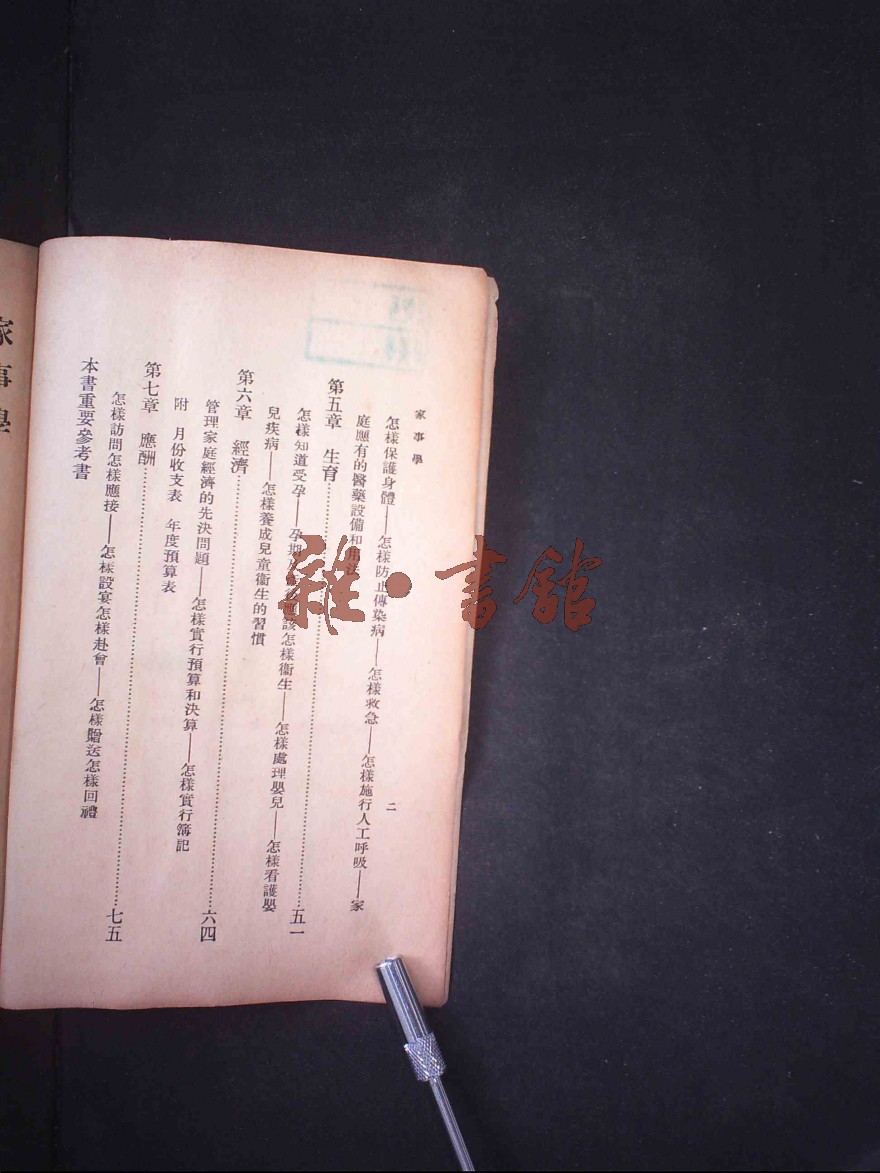 家事學
二
怎樣保護身體——怎樣防止傳染病——怎樣救急——怎樣施行人工呼吸——家
庭應有的醫藥設備和用法
第五章　生育……五一
怎樣知道受孕——孕期及產後應該怎樣衞生——怎樣處理嬰兒——怎樣看護嬰
兒疾病——怎樣養成兒童衞生的習慣
第六章　經濟……六四
管理家庭經濟的先決問題——怎樣實行預算和決算——怎樣實行簿記
附　月份收支表　年度預算表
第七章　應酬……七五
怎樣訪問怎樣應接——怎樣設宴怎樣赴會——怎樣贈送怎樣回禮
本書重要參考書
家事學
雜·書館